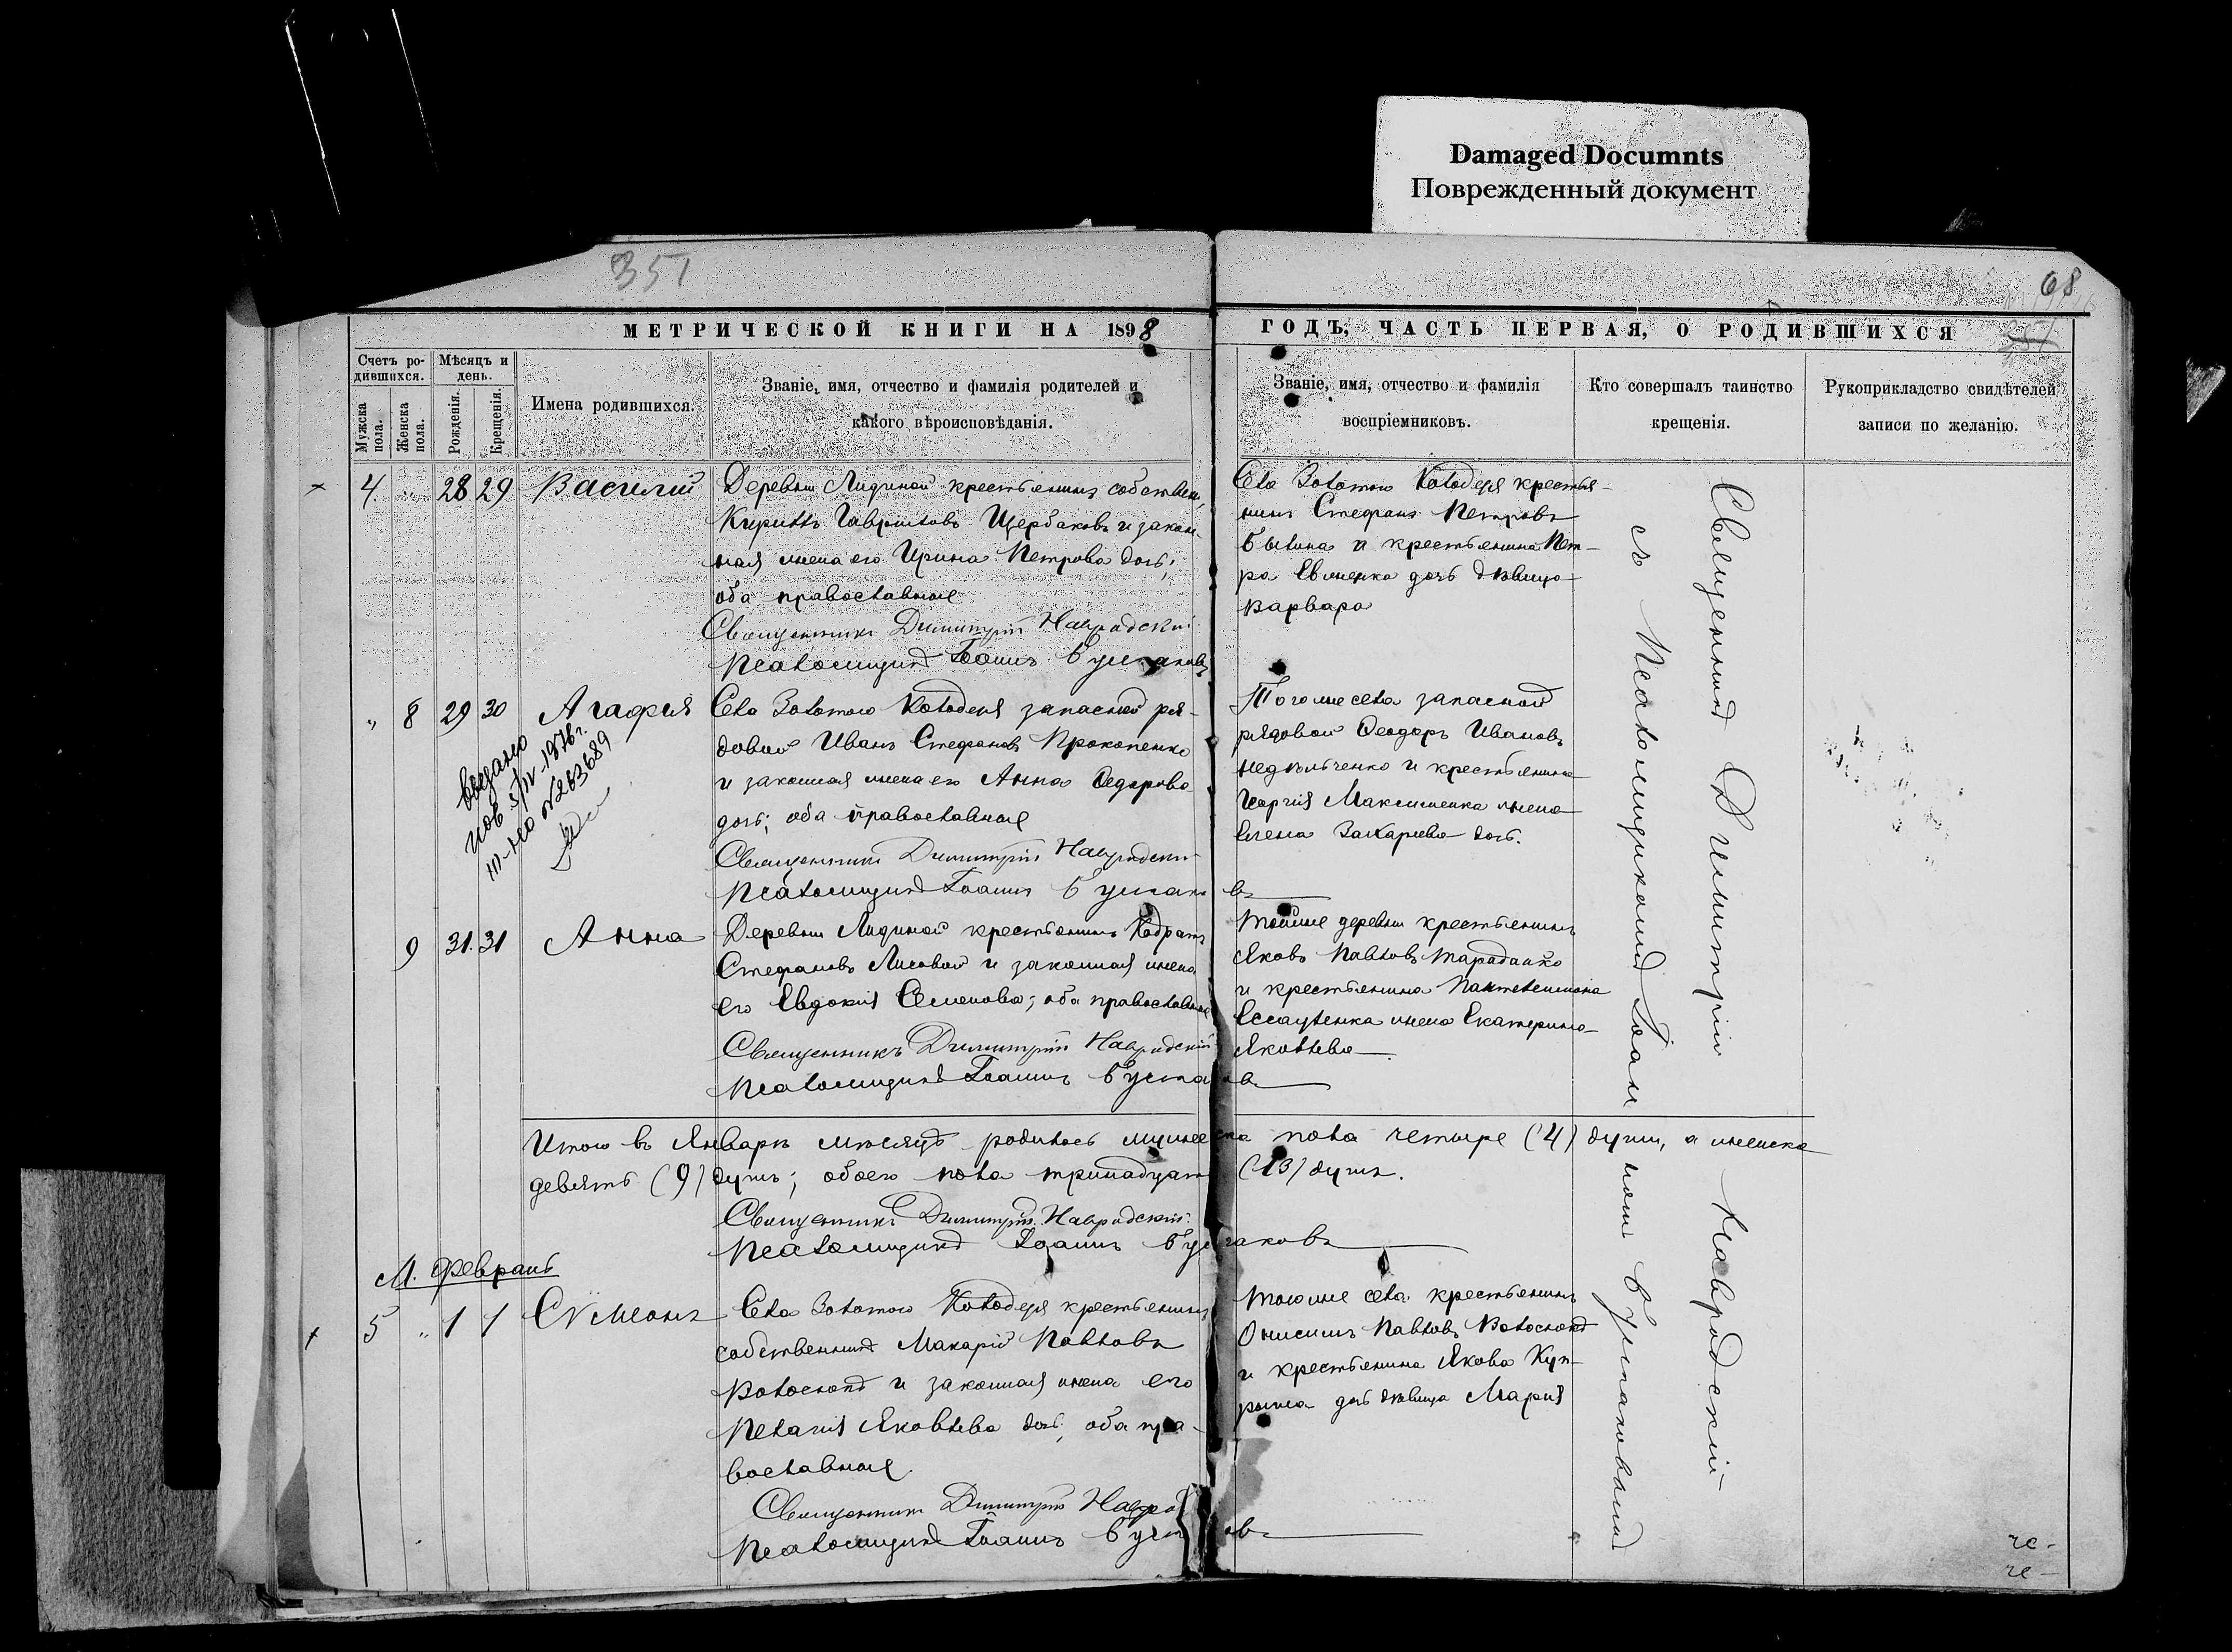 Damaged Documnts
Поврежденный документ
351
68
МЕТРИЧЕСКОЙ КНИГИ НА 1898
ГОДЪ, ЧАСТЬ ПЕРВАЯ, О РОДИВШИХСЯ
357
Счетъ ро-
дившихся.
Мѣсяцъ и
день.
Мужска
пола.
Женска
пола.
Рожденія.
Крещенія.
Имена родившихся.
Званіе, имя, отчество и фамилія родителей и
какого вѣроисповѣданія.
Званіе, имя, отчество и фамилія
воспріемниковъ.
Кто совершалъ таинство
крещенія.
Рукоприкладство свидѣтелей
записи по желанію.
4. „ 28 29 Василій
Деревни Лидиной крестьянинъ собствен.
Кириллъ Гавриловъ Щербаковъ и закон-
ная жена его Ирина Петрова дочь;
оба православные
Священникъ Димитрій Навродскій
Псаломщикъ Іоаннъ Бушаковъ
Села Золотого Колодезя крестья-
нинъ Стефанъ Петровъ
и крестьянина Пет-
ра дочь дѣвица
Варвара
„ 8 29 30 Агафія
Села Золотого Колодезя запасной ря-
довой Иванъ Стефановъ Прокопенко
и законная жена его Анна Федорова
дочь; оба православные
Священникъ Димитрій Навродскій
Псаломщикъ Іоаннъ
Того же села запасной
рядовой Феодоръ Ивановъ
и крестьянина
Георгія Максименка жена
Елена Захарьева дочь.
выдано
5/IV-1976 г.
III-НО №263689
9 31. 31 Анна
Деревни Лидиной крестьянинъ Кодратъ
Стефановъ Лисовой и законная жена
его Евдокія Семенова; оба православные
Священникъ Димитрій Навродскій
Псаломщикъ Іоаннъ
Той же деревни крестьянинъ
Яковъ Павловъ Тарадайко
и крестьянина Пантелеимона
Ессауленка жена Екатерина
Яковлева
Итого въ Январѣ мѣсяцѣ родилось мужеска пола четыре (4) души, а женска
девять (9) душъ; обоего пола тринадцать (13) душъ.
Священникъ Димитрій Навродскій
Псаломщикъ Іоаннъ
М. Февраль
5 „ 1 1 Сѵмеонъ
Села Золотого Колодезя крестьянинъ
собственникъ Макарій Павловъ
Волоконд и законная жена его
Пелагія Яковлева дочь; оба пра-
вославные
Священникъ Димитрій
Псаломщикъ Іоаннъ
Того же села крестьянинъ
Онисимъ Павловъ
и крестьянина Якова Куп-
дочь дѣвица Марія
Священникъ Димитрій Навродскій
съ Псаломщикомъ Іоанномъ